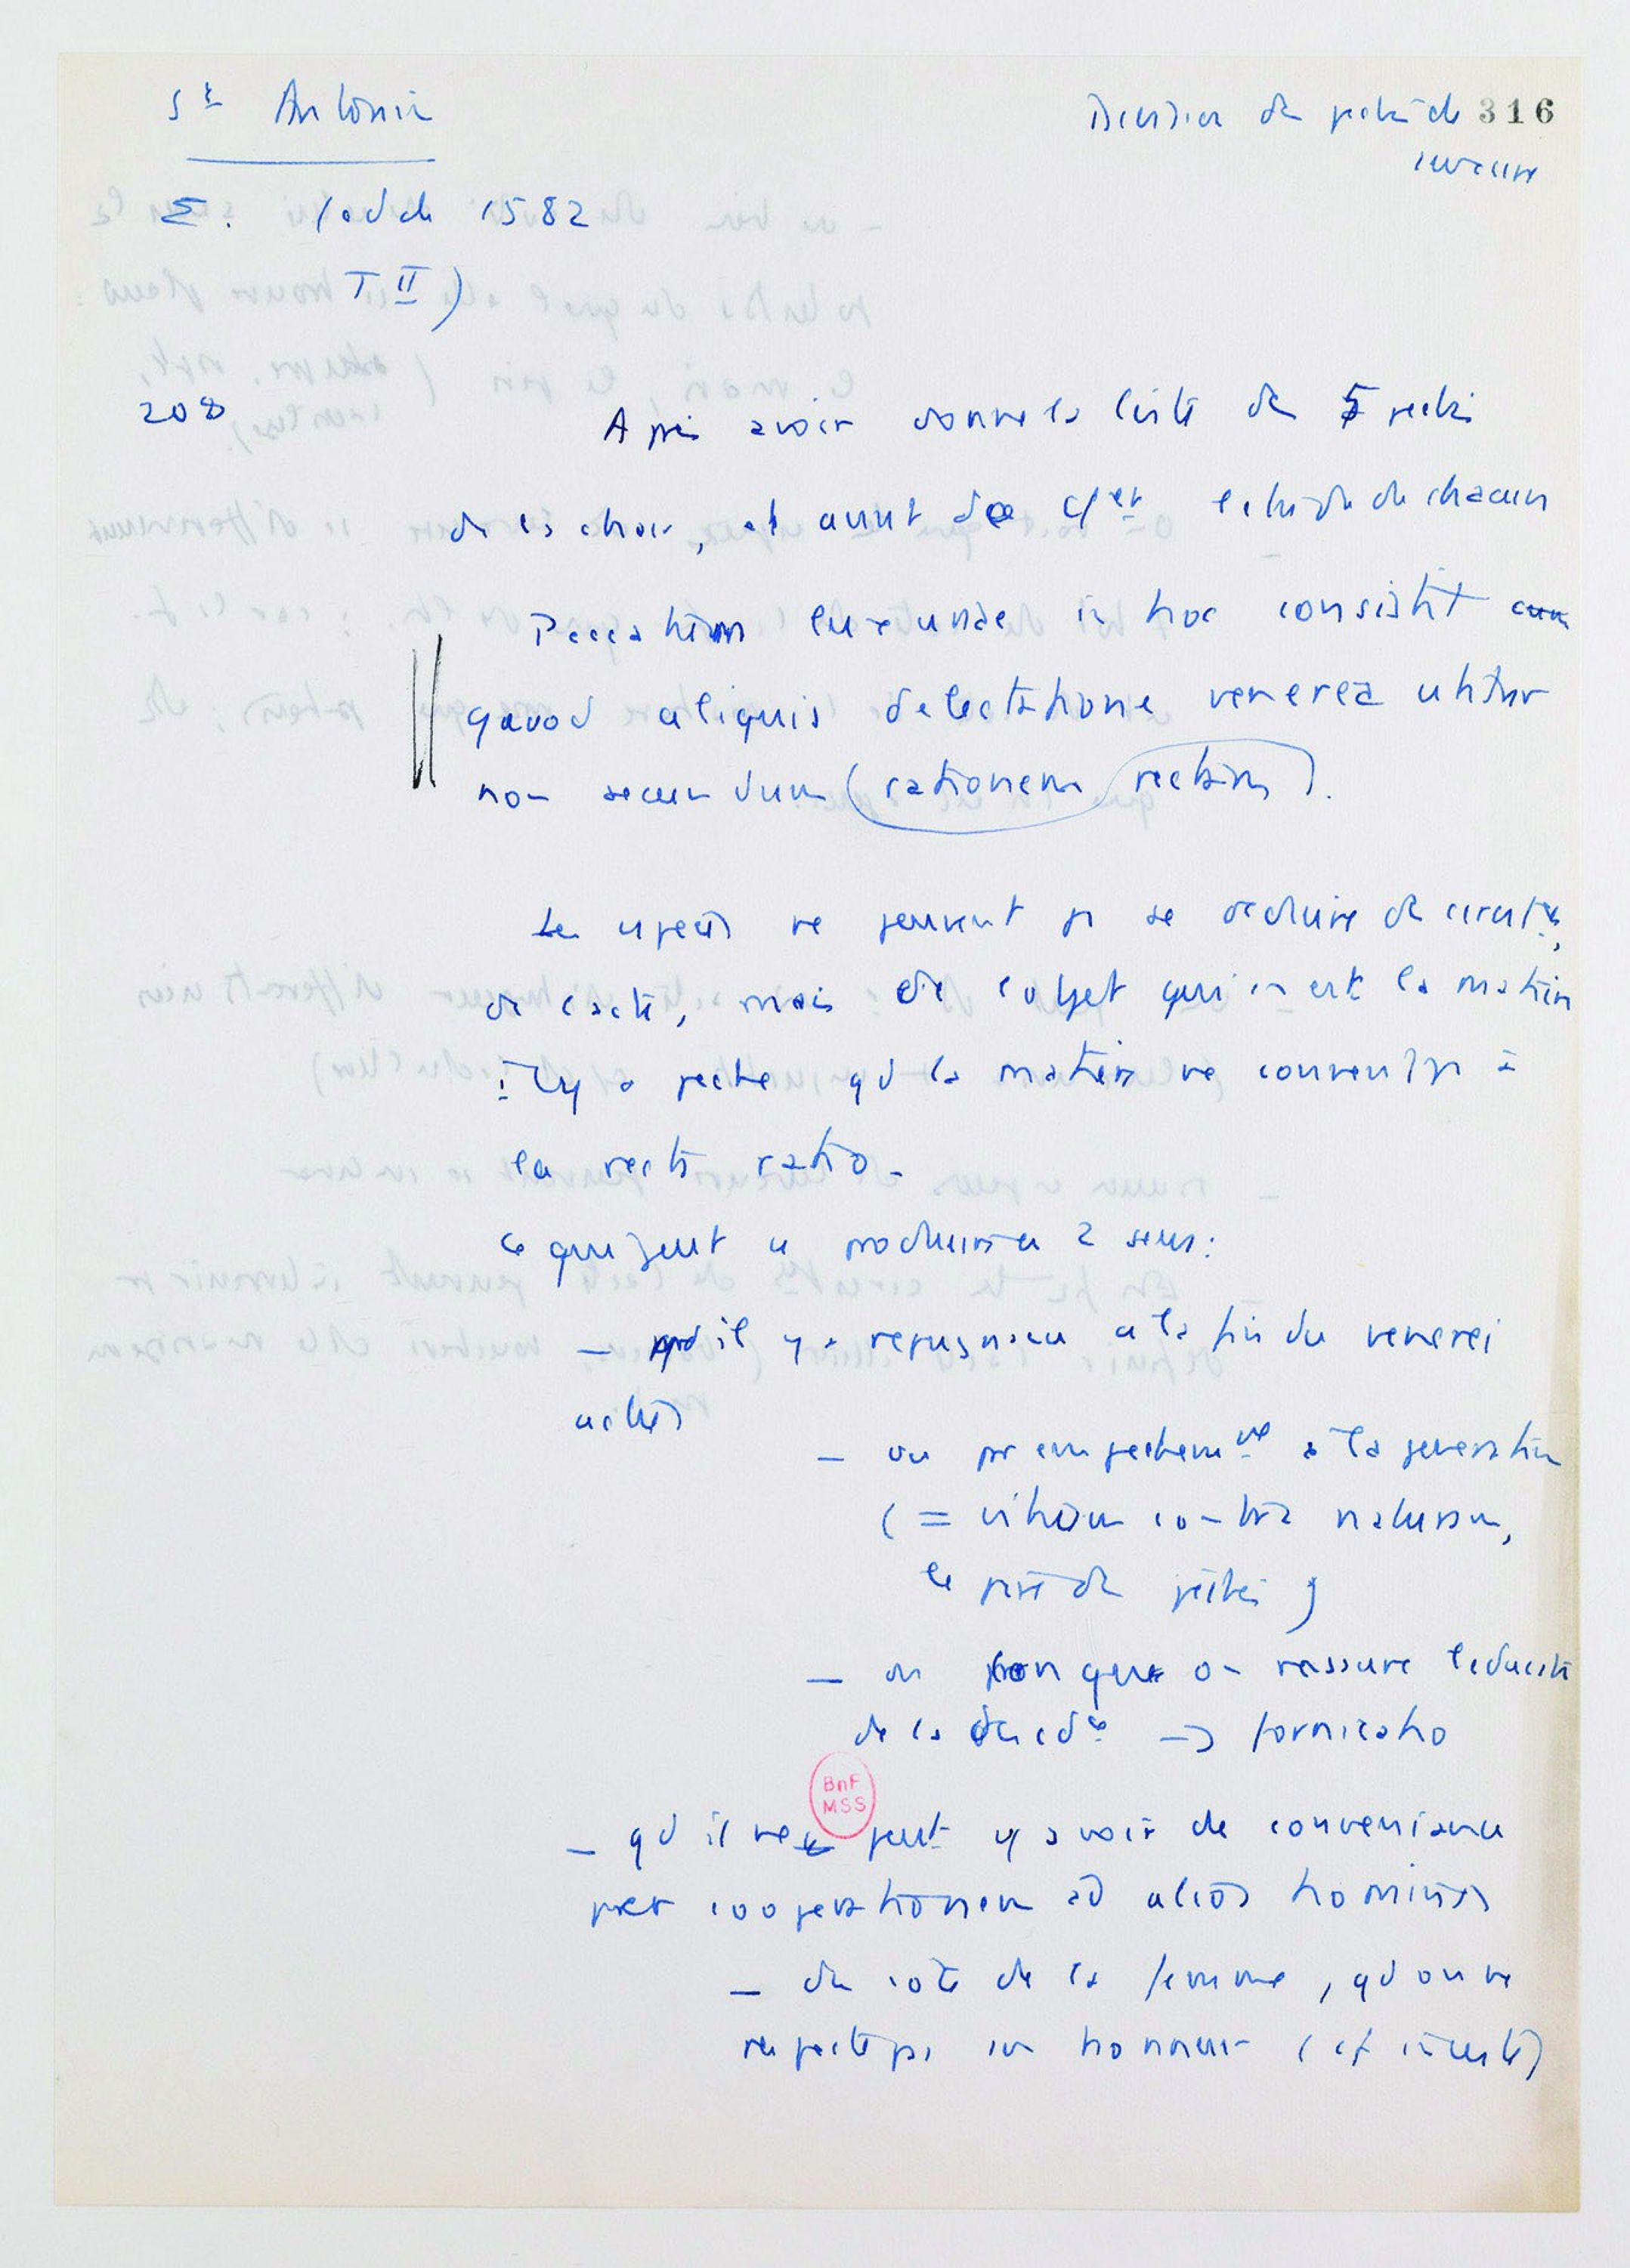 St Antonin
Division du péché de 316
luxure
Σ. (ed de 1582
T II)
208
Après avoir donné la liste des 5 péchés
de la chair, et avant de l'étude de chacun
Peccatum luxuriae in hoc consistit cum
quod aliquis delectatione venerea utitur
non secundum (rationem rectam).
Les espèces ne peuvent pas se déduire des circtes,
de l'acte, mais de l'objet qui en est la matière
Il y a péché qd la matière ne convient pas à
la recta ratio.
Ce qui peut se produire en 2 sens:
— qd il y a répugnance à la fin du venerei
actus
— ou par empêchemt à la génération
(= vitium contra naturam,
le pire des péchés)
— ou que on rassure l'éducat
de la → fornicatio
BnF
MSS
— qd il ne peut y avoir de convenance
per cooperationem ad alios homines
— du côté de la femme, qd on ne
respecte pas son honneur (cf inceste)